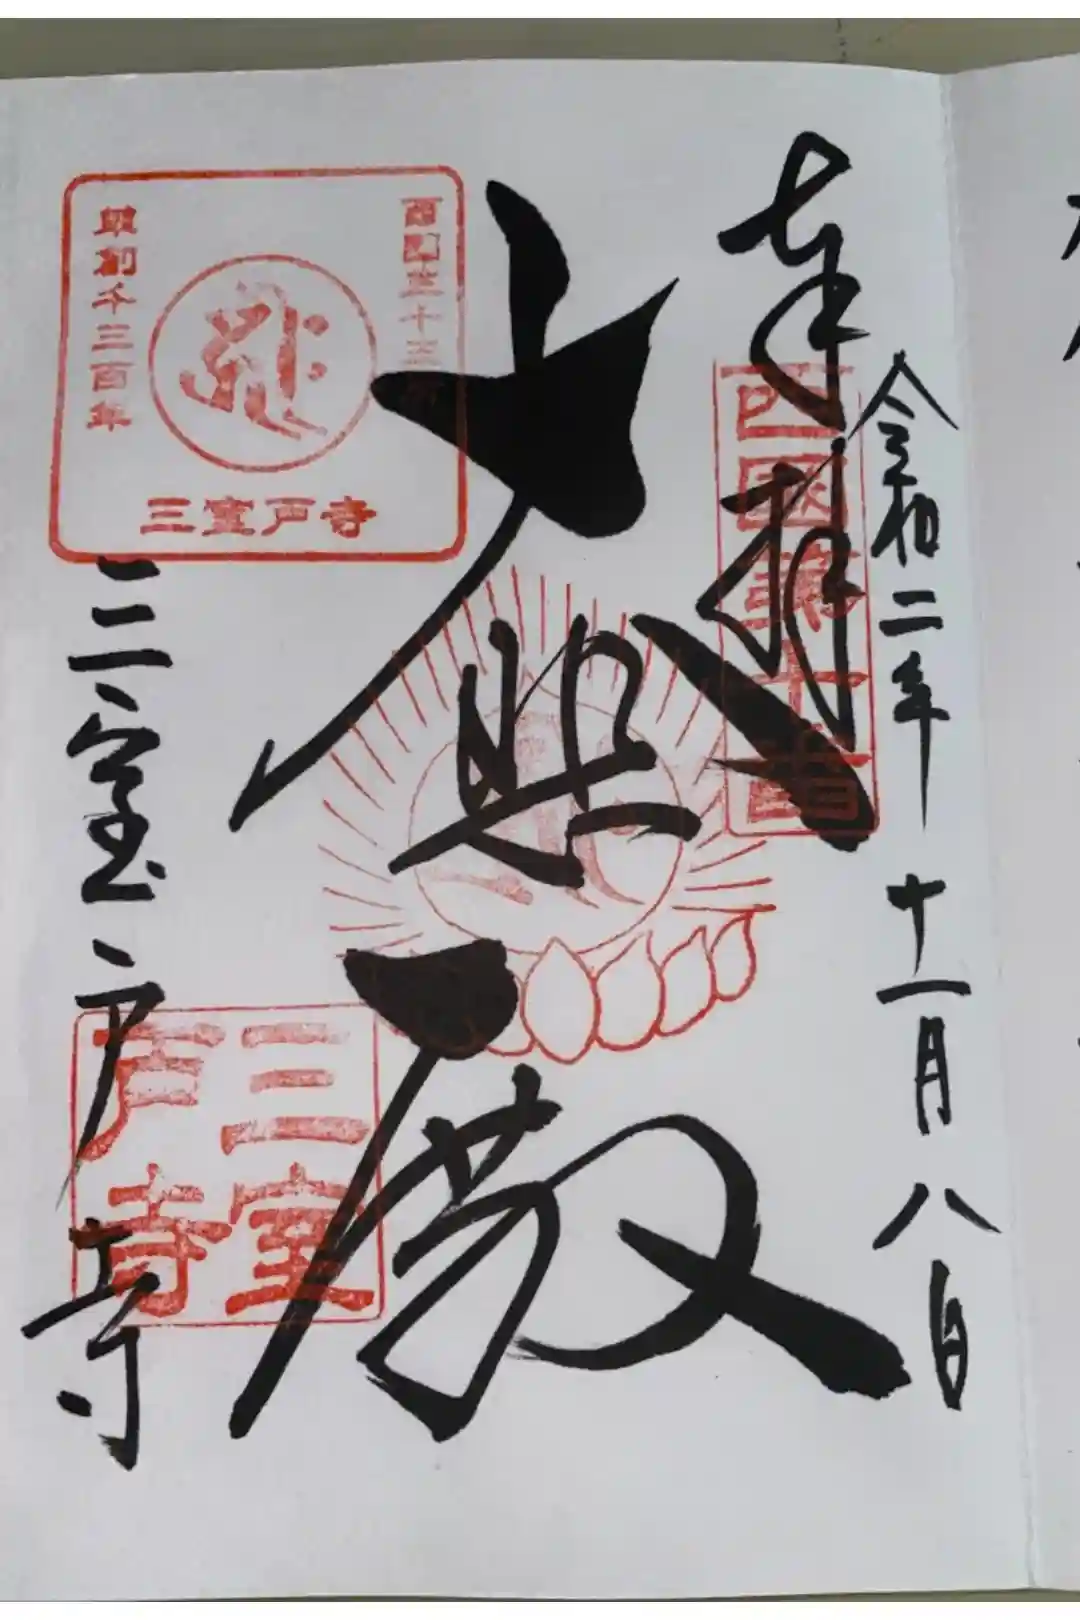 令和二年十一月八日
奉拝
西國第十番
大悲殿
西国三十三所
草創千三百年
三室戸寺
三室戸寺
三室戸寺